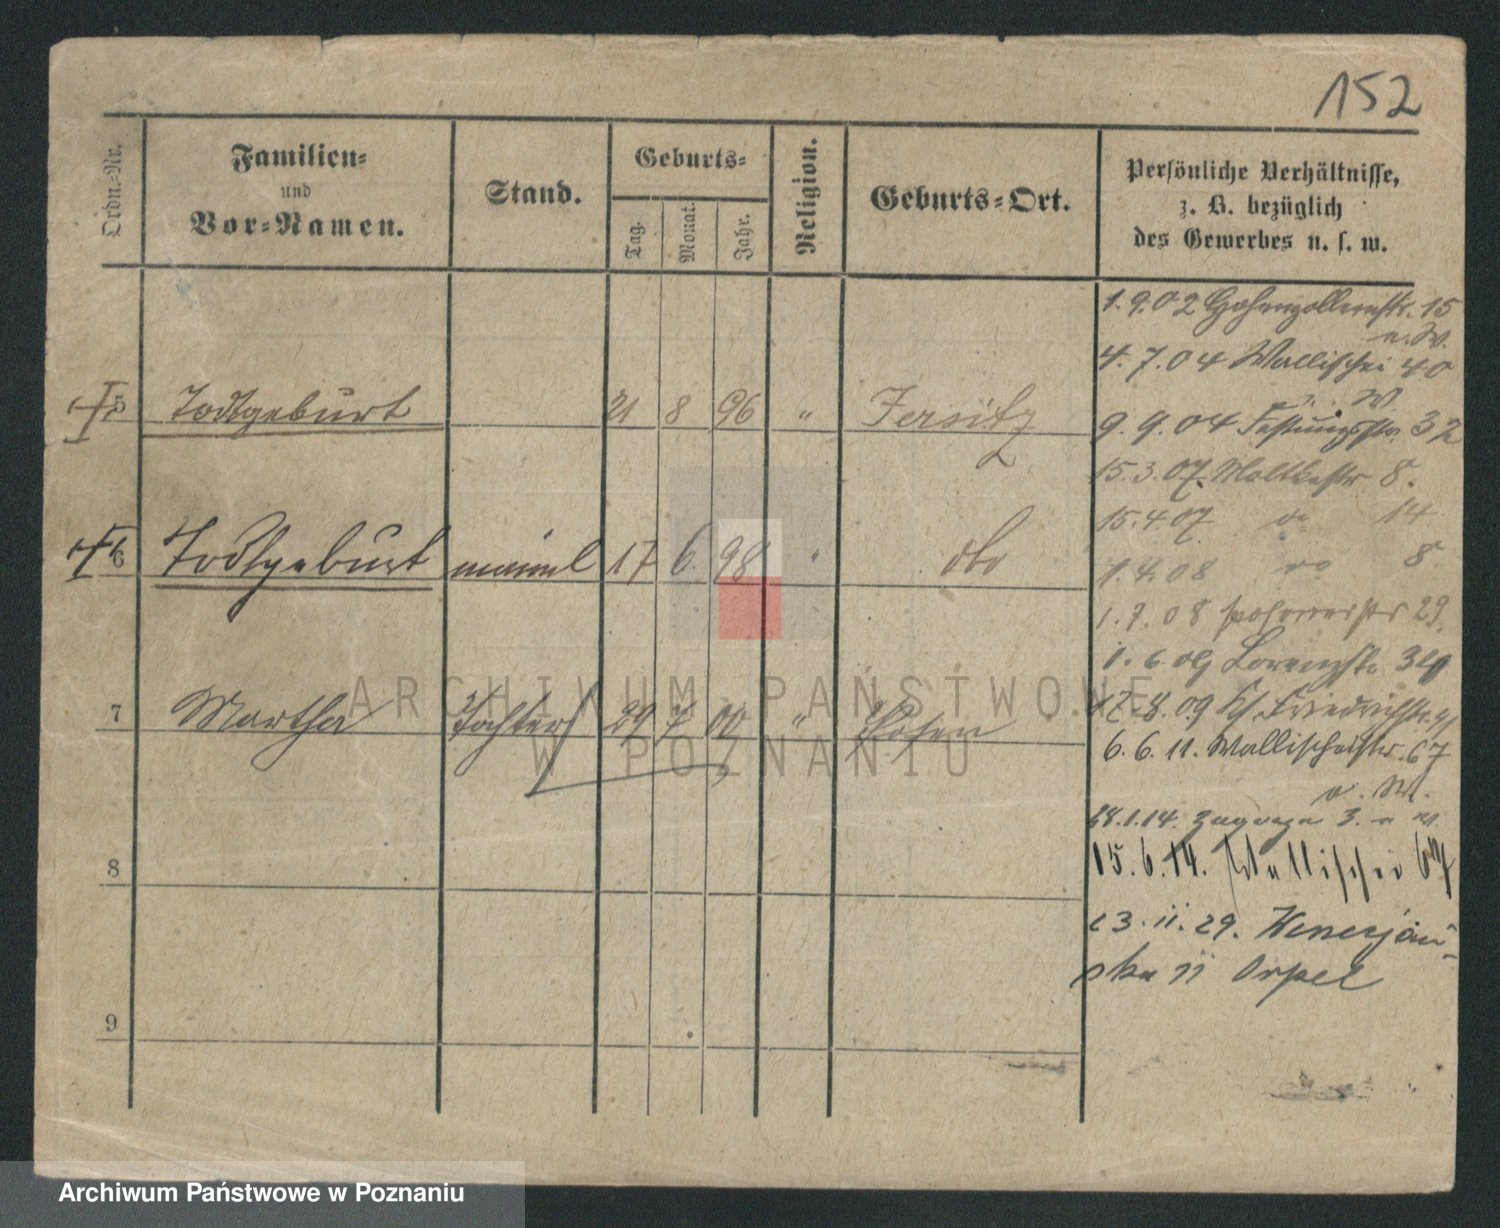 152
Ordn.-Nr.
Familien-
und
Vor-Namen.
Stand.
Geburts-
Tag.
Monat.
Jahr.
Religion.
Geburts-Ort.
Persönliche Verhältnisse,
z. B. bezüglich
des Gewerbes u. s. w.
1.9.02 Hohenzollernstr. 15
u. W.
4.7.04 Wallischei 40
W.
5 Todtgeburt 21 8 96 " Jersitz
9.9.04 Festungsstr. 32
15.3.07. Moltkestr. 8.
15.4.07 do 14
6 Todtgeburt männl 17 6. 98 " dto
1.4.08 do 8.
1.7.08 29.
1.6.09 Lorenzstr.
7 Martha Tochter 29 7 00 " Posen
17.8.09 Kl. Friedrichstr.
6.6.11. Wallischeistr. 67
v. W.
28.1.14. Zagorze 3.
15.6.14. Wallischei 67
8
23.11.29. Wenecjań-
ska 11 Orpel
9
ARCHIWUM PAŃSTWOWE
W POZNANIU
Archiwum Państwowe w Poznaniu